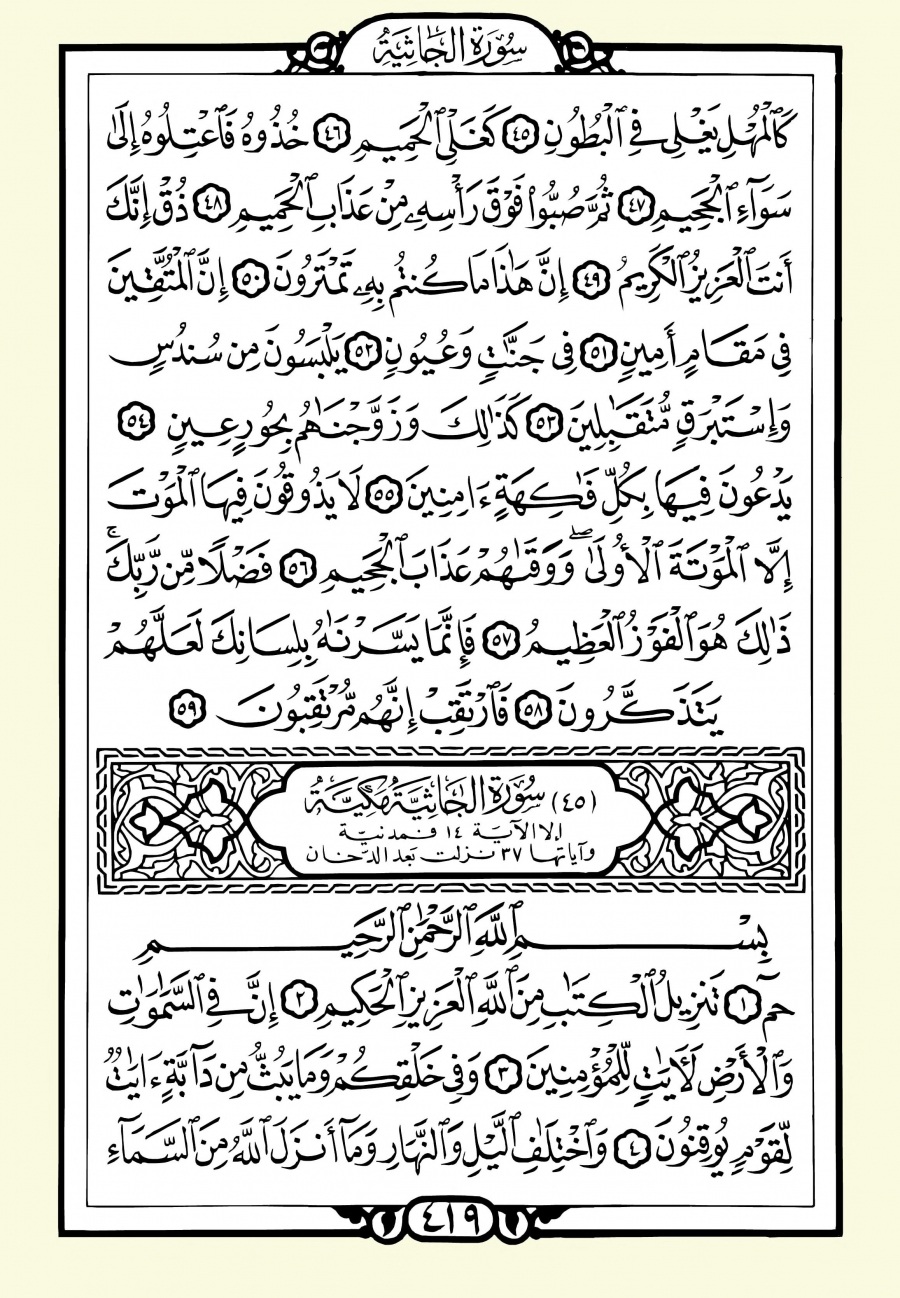 سُورَةُ الجَاثِيَةِ
كَٱلْمُهْلِ يَغْلِى فِى ٱلْبُطُونِ ٤٥ كَغَلْىِ ٱلْحَمِيمِ ٤٦ خُذُوهُ فَٱعْتِلُوهُ إِلَىٰ
سَوَآءِ ٱلْجَحِيمِ ٤٧ ثُمَّ صُبُّوا۟ فَوْقَ رَأْسِهِۦ مِنْ عَذَابِ ٱلْحَمِيمِ ٤٨ ذُقْ إِنَّكَ
أَنتَ ٱلْعَزِيزُ ٱلْكَرِيمُ ٤٩ إِنَّ هَٰذَا مَا كُنتُم بِهِۦ تَمْتَرُونَ ٥٠ إِنَّ ٱلْمُتَّقِينَ
فِى مَقَامٍ أَمِينٍ ٥١ فِى جَنَّٰتٍ وَعُيُونٍ ٥٢ يَلْبَسُونَ مِن سُندُسٍ
وَإِسْتَبْرَقٍ مُّتَقَٰبِلِينَ ٥٣ كَذَٰلِكَ وَزَوَّجْنَٰهُم بِحُورٍ عِينٍ ٥٤
يَدْعُونَ فِيهَا بِكُلِّ فَٰكِهَةٍ ءَامِنِينَ ٥٥ لَا يَذُوقُونَ فِيهَا ٱلْمَوْتَ
إِلَّا ٱلْمَوْتَةَ ٱلْأُولَىٰ ۖ وَوَقَىٰهُمْ عَذَابَ ٱلْجَحِيمِ ٥٦ فَضْلًا مِّن رَّبِّكَ ۚ
ذَٰلِكَ هُوَ ٱلْفَوْزُ ٱلْعَظِيمُ ٥٧ فَإِنَّمَا يَسَّرْنَٰهُ بِلِسَانِكَ لَعَلَّهُمْ
يَتَذَكَّرُونَ ٥٨ فَٱرْتَقِبْ إِنَّهُم مُّرْتَقِبُونَ ٥٩
(٤٥) سُورَةُ الجَاثِيَةِ مَكِيَّةٌ
إلا الآية ١٤ فمدنية
وآياتها ٣٧ نزلت بعد الدخان
بِسْمِ ٱللَّهِ ٱلرَّحْمَٰنِ ٱلرَّحِيمِ
حمٓ ١ تَنزِيلُ ٱلْكِتَٰبِ مِنَ ٱللَّهِ ٱلْعَزِيزِ ٱلْحَكِيمِ ٢ إِنَّ فِى ٱلسَّمَٰوَٰتِ
وَٱلْأَرْضِ لَءَايَٰتٍ لِّلْمُؤْمِنِينَ ٣ وَفِى خَلْقِكُمْ وَمَا يَبُثُّ مِن دَآبَّةٍ ءَايَٰتٌ
لِّقَوْمٍ يُوقِنُونَ ٤ وَٱخْتِلَٰفِ ٱلَّيْلِ وَٱلنَّهَارِ وَمَآ أَنزَلَ ٱللَّهُ مِنَ ٱلسَّمَآءِ
٤١٩